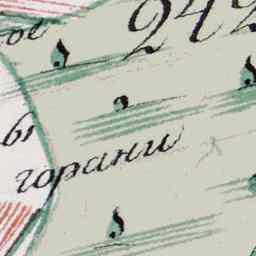 ое
242
горани